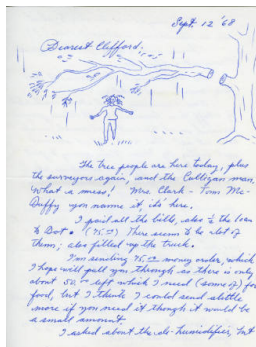 Sept. 12 '68
Dearest Clifford.
The tree people are here today, plus
the surveyors again, and the Culligan man.
What a mess! Mrs Clark - Tom Mc-
Duffy you name it, it's here.
I paid all the bills, also ½ the loan
to Dot. (75.00) There seems to be a lot of
them; also filled up the truck.
I'm sending 75.00 money order, which
I hope will pull you through as there is only
about 50.00 left which I need (some of) for
food, but I think I could send a little
more if you need it though it would be
a small amount.
I asked about the de-humidifier, but